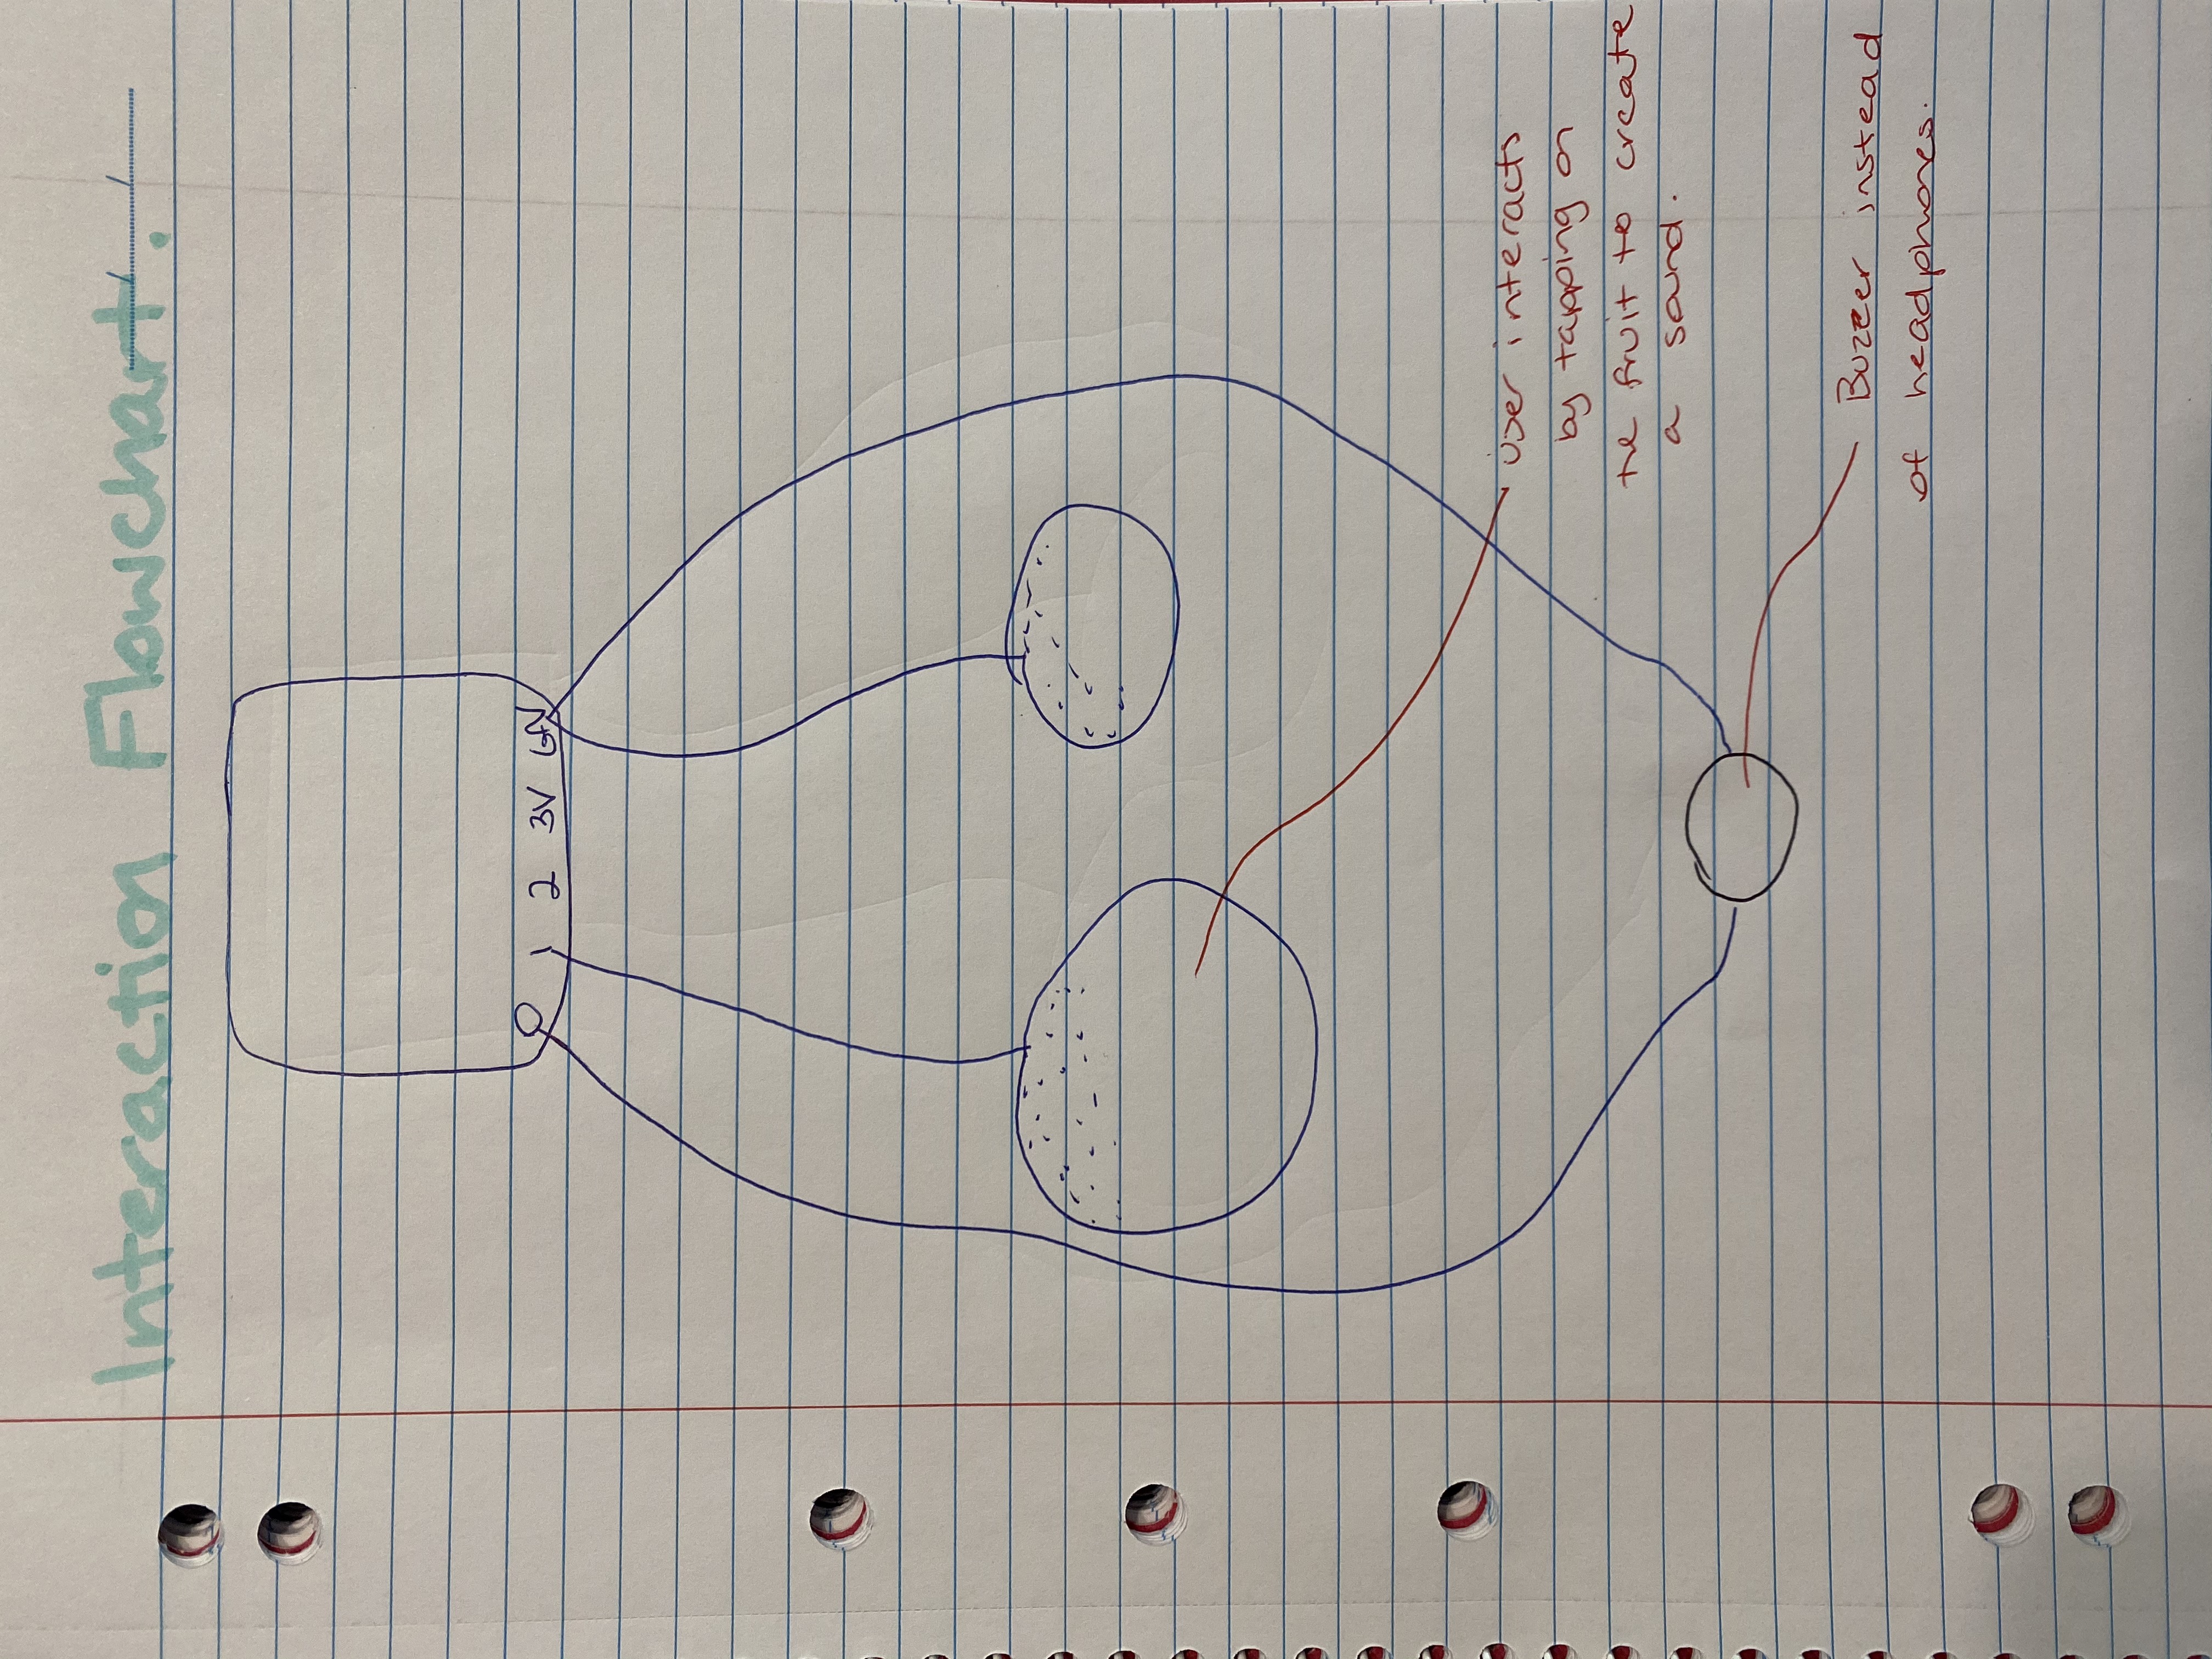 Interaction Flowchart.
0 1 2 3V GN
User interacts
by tapping on
the fruit to create
a sound.
Buzzer instead
of headphones.